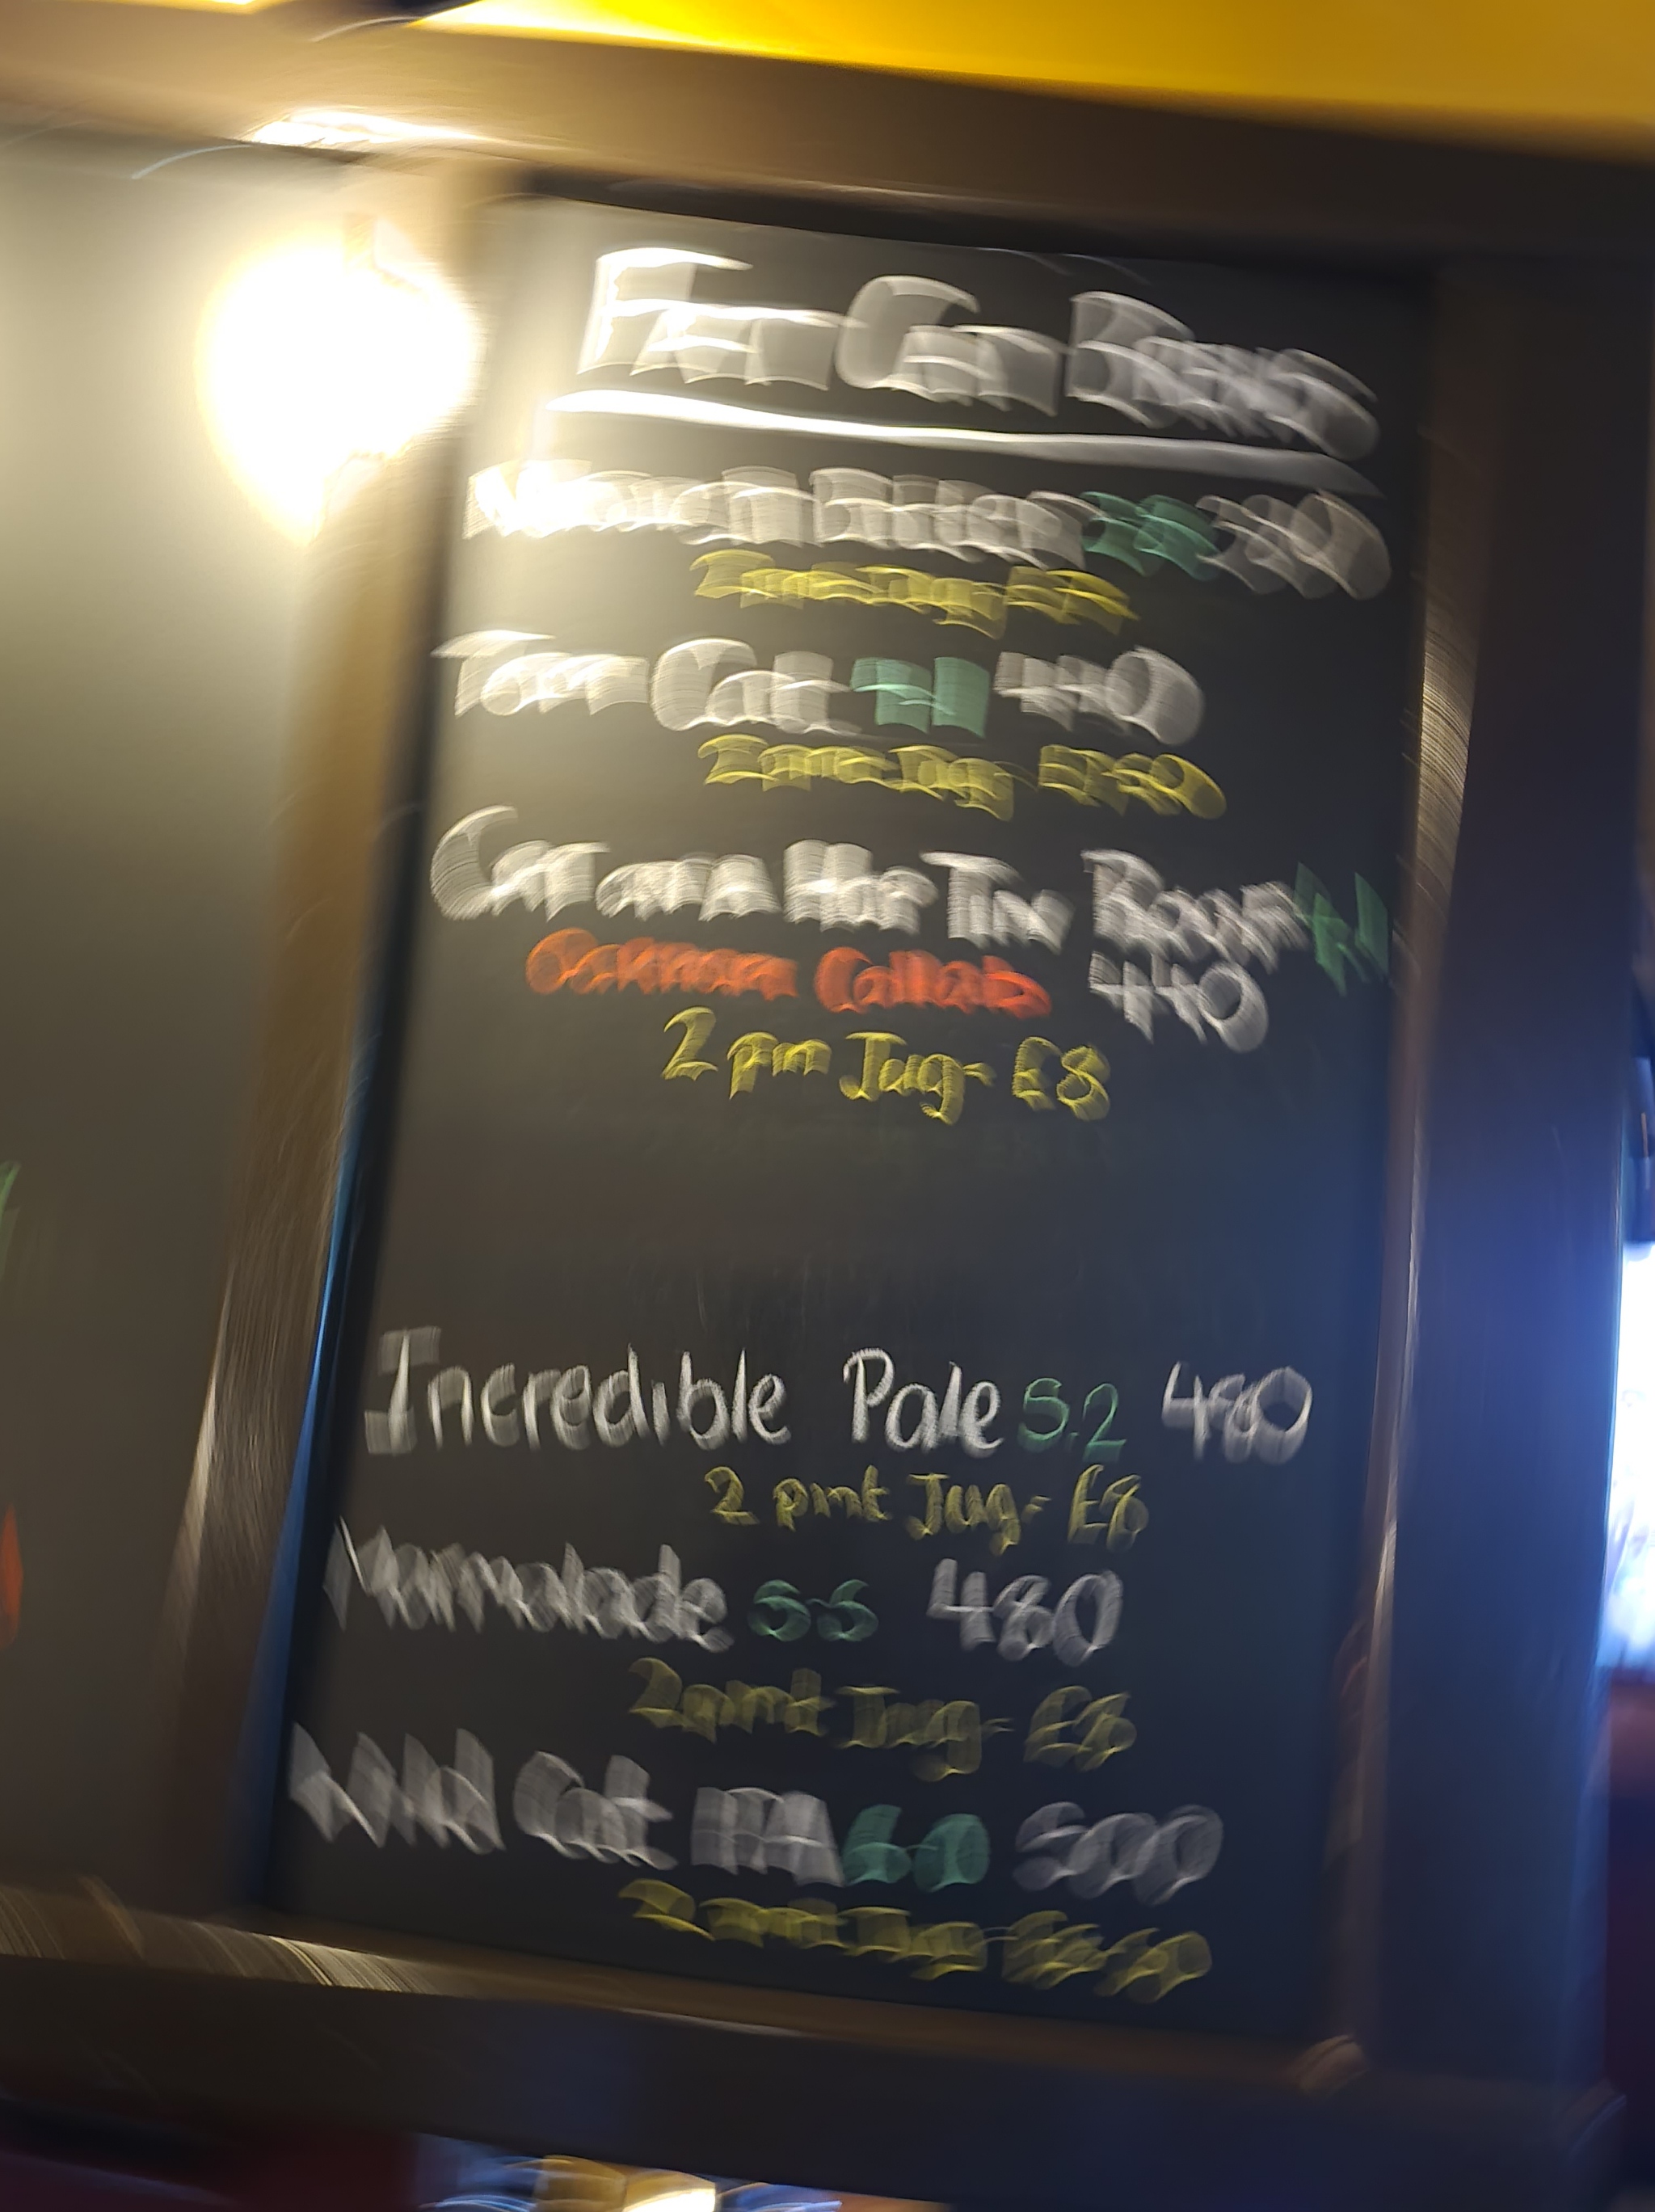 Fat Cat Brews
Norwich Bitter 3.8 380
2 pint Jug £7
Tom Cat 4.1 440
2 pint Jug £7.50
Cat on a Hop Tin Roof 4.1
Oakham Collab 440
2 pin Jug- £8
Incredible Pale 5.2 480
2 pint Jug- £8
Marmalade 5.5 480
2 pint Jug- £8
Wild Cat IPA 6.0 500
2 pint Jug-